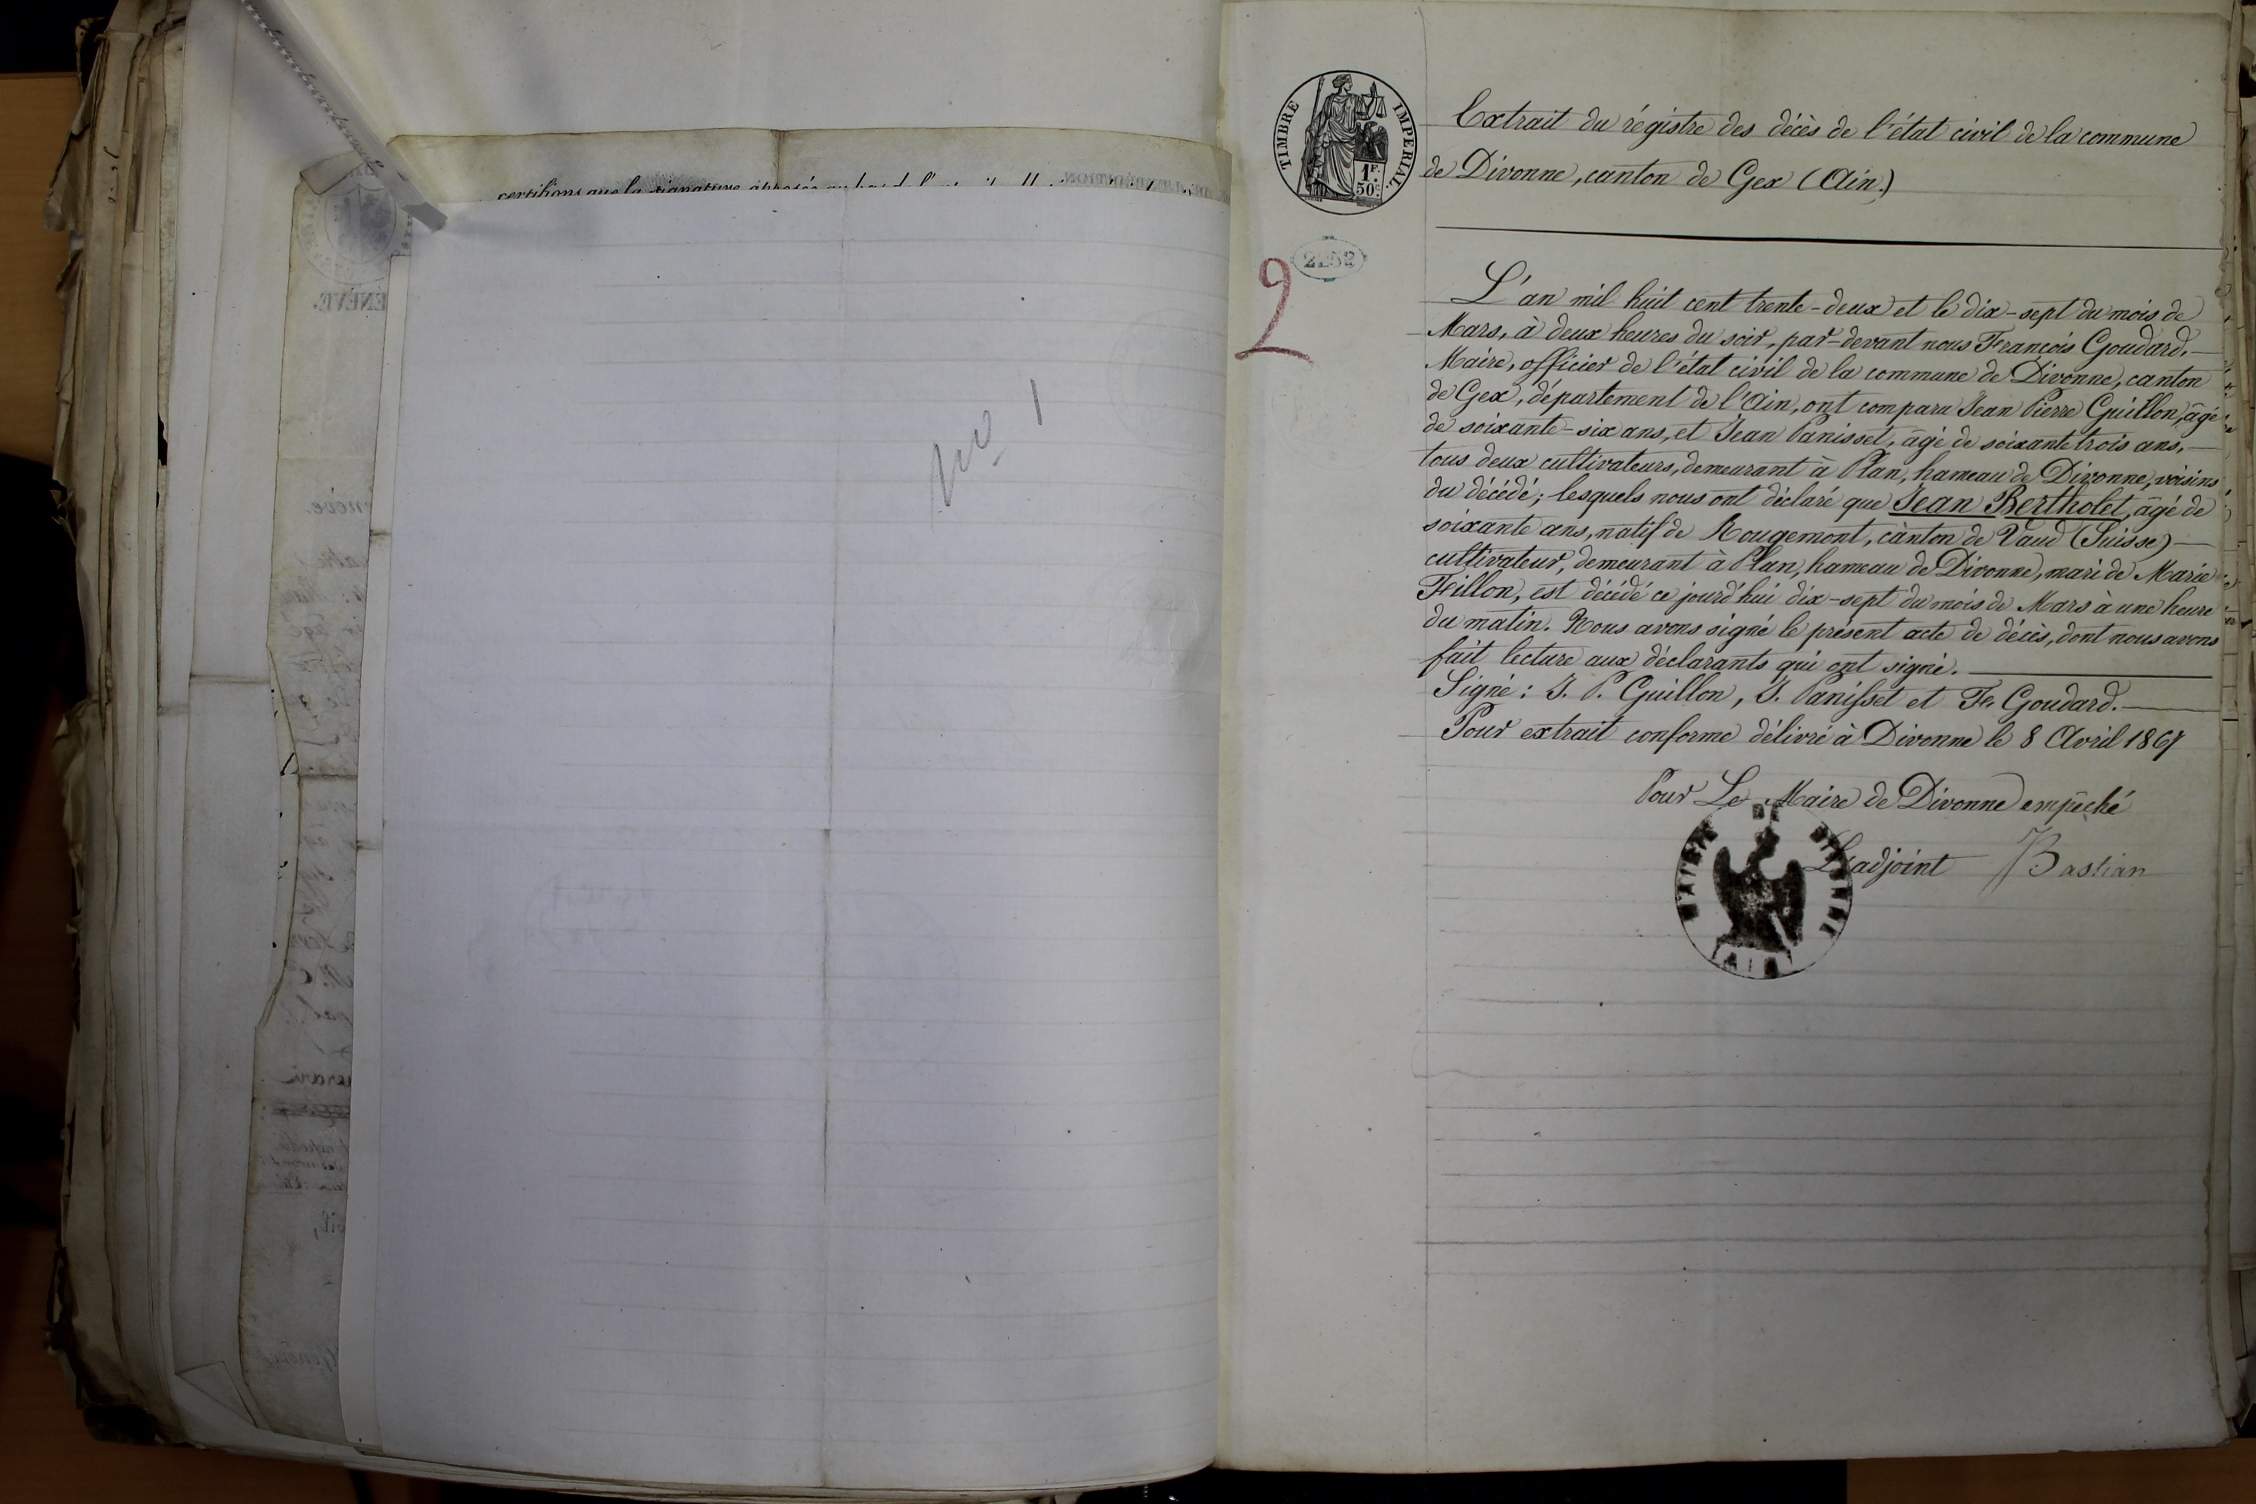 certifions que la signature apposée au bas de l'
No 1
TIMBRE IMPERIAL
1F.
50c.
2
Extrait du régistre des décès de l'état civil de la commune
de Divonne, canton de Gex (Ain.)
L'an mil huit cent trente-deux et le dix-sept du mois de
Mars, à deux heures du soir, par-devant nous François Goudard,
Maire, officier de l'état civil de la commune de Divonne, canton
de Gex, département de l'Ain, ont comparu Jean Pierre Guillon, âgé
de soixante-six ans, et Jean Panisset, âgé de soixante trois ans,
tous deux cultivateurs, demeurant à Plan, hameau de Divonne, voisins
du décédé; lesquels nous ont déclaré que Jean Bertholet, âgé de
soixante ans, natif de Rougemont, canton de Vaud (Suisse)
cultivateur, demeurant à Plan, hameau de Divonne, mari de Marie
Fillon, est décédé ce jourd'hui dix-sept du mois de Mars à une heure
du matin. Nous avons signé le présent acte de décès, dont nous avons
fait lecture aux déclarants qui ont signé.
Signé: J. P. Guillon, J. Panisset et Fs Goudard.
Pour extrait conforme délivré à Divonne le 8 Avril 1867
Pour Le Maire de Divonne empêché
L'adjoint Bastian
MAIRIE DIVONNE
AIN